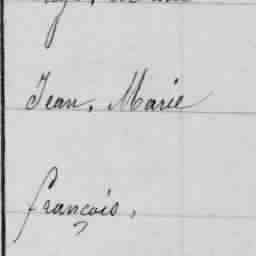 Jean, Marie
françois,